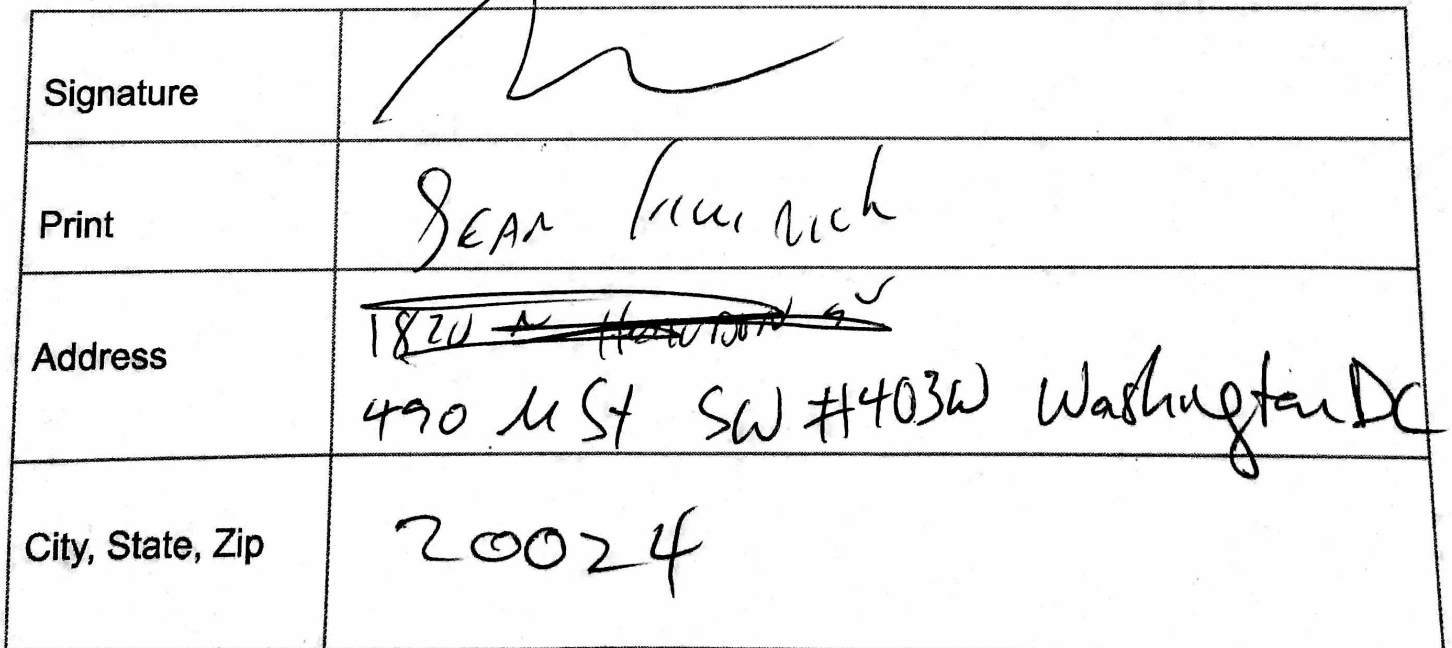 Signature
Print
SEAN
Address
1820 N
490 M St SW #403W Washington DC
City, State, Zip
20024